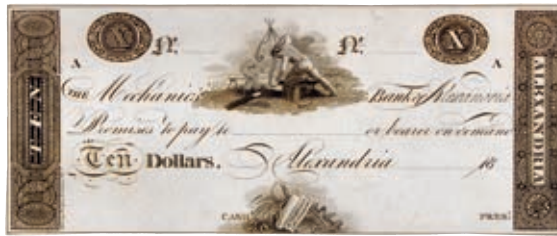 X Nº. Nº. X
A A
THE Mechanics Bank of Alexandria
Promises to pay to or bearer on demand
Ten Dollars. Alexandria 18
CASHr. PRESt.
ALEXANDRIA